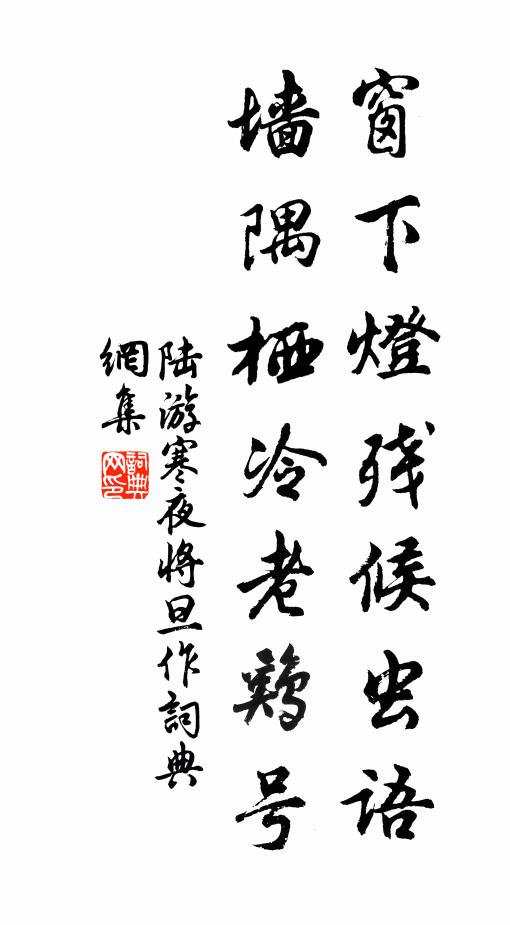 窗下燈残候虫语
墙隅栖冷老鷄号
陆游寒夜将旦作詞典
網集
詞典网印